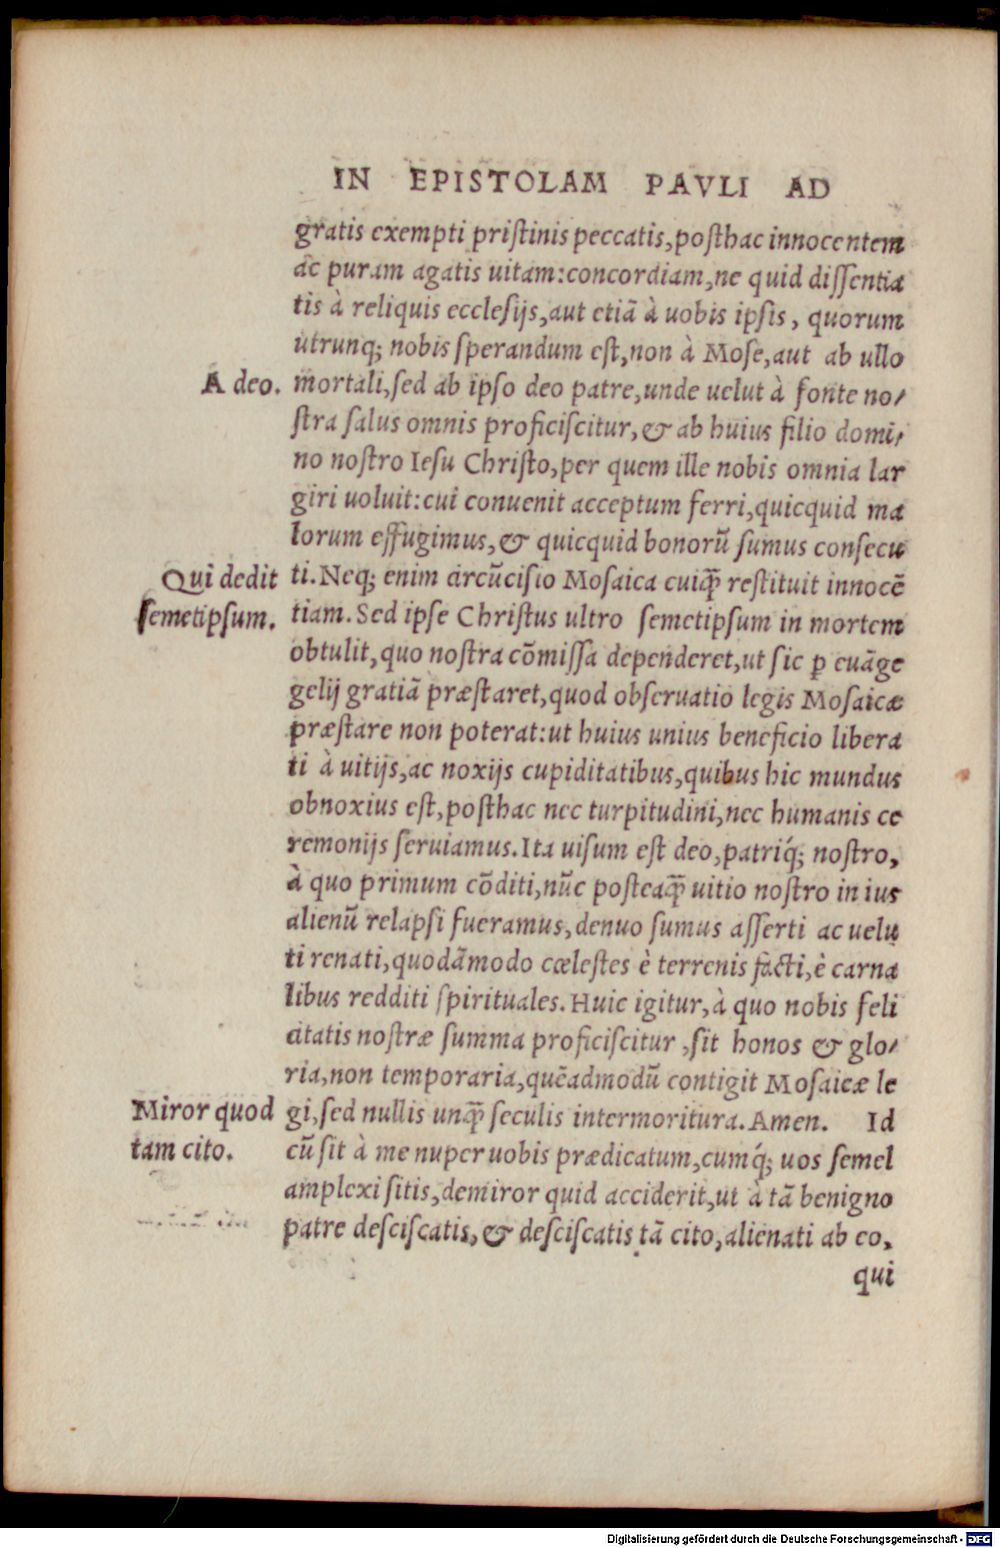 IN EPISTOLAM PAVLI AD
gratis exempti pristinis peccatis, posthac innocentem
ac puram agatis uitam: concordiam, ne quid dissentia
tis à reliquis ecclesijs, aut etiā à uobis ipsis, quorum
utrunq; nobis sperandum est, non à Mose, aut ab ullo
A deo.
mortali, sed ab ipso deo patre, unde uelut à fonte no/
stra salus omnis proficiscitur, & ab huius filio domi/
no nostro Iesu Christo, per quem ille nobis omnia lar
giri uoluit: cui conuenit acceptum ferri, quicquid ma
lorum effugimus, & quicquid bonorū sumus consecu
Qui dedit
semetipsum.
ti. Neq; enim circūcisio Mosaica cuiq̄ restituit innocē
tiam. Sed ipse Christus ultro semetipsum in mortem
obtulit, quo nostra cōmissa dependeret, ut sic ꝑ euāge
gelij gratiā præstaret, quod obseruatio legis Mosaicæ
præstare non poterat: ut huius unius beneficio libera
ti à uitijs, ac noxijs cupiditatibus, quibus hic mundus
obnoxius est, posthac nec turpitudini, nec humanis ce
remonijs seruiamus. Ita uisum est deo, patriq́; nostro,
à quo primum cōditi, nūc posteaq̄ uitio nostro in ius
alienū relapsi fueramus, denuo sumus asserti ac uelu
ti renati, quodāmodo cœlestes è terrenis facti, è carna
libus redditi spirituales. Huic igitur, à quo nobis feli
citatis nostræ summa proficiscitur, sit honos & glo/
ria, non temporaria, quēadmodū contigit Mosaicæ le
Miror quod
tam cito.
gi, sed nullis unq̄ seculis intermoritura. Amen. Id
cū sit à me nuper uobis prædicatum, cumq́; uos semel
amplexi sitis, demiror quid acciderit, ut à tā benigno
patre desciscatis, & desciscatis tā cito, alienati ab eo,
qui
Digitalisierung gefördert durch die Deutsche Forschungsgemeinschaft - DFG